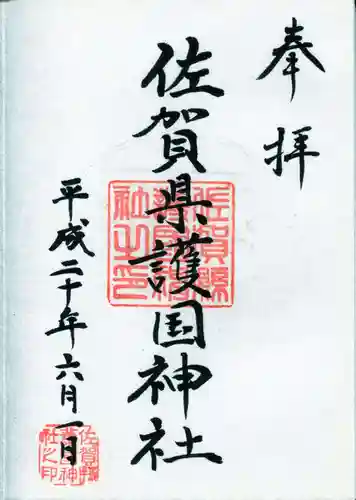 奉拝
佐賀県護国神社
佐賀縣護國神社之印
平成二十年六月一日
佐賀縣護國神社之印